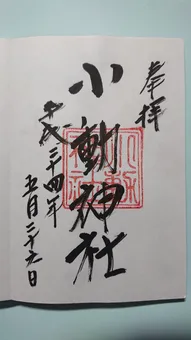 奉拝
小動神社
平成二十四年
五月二十六日